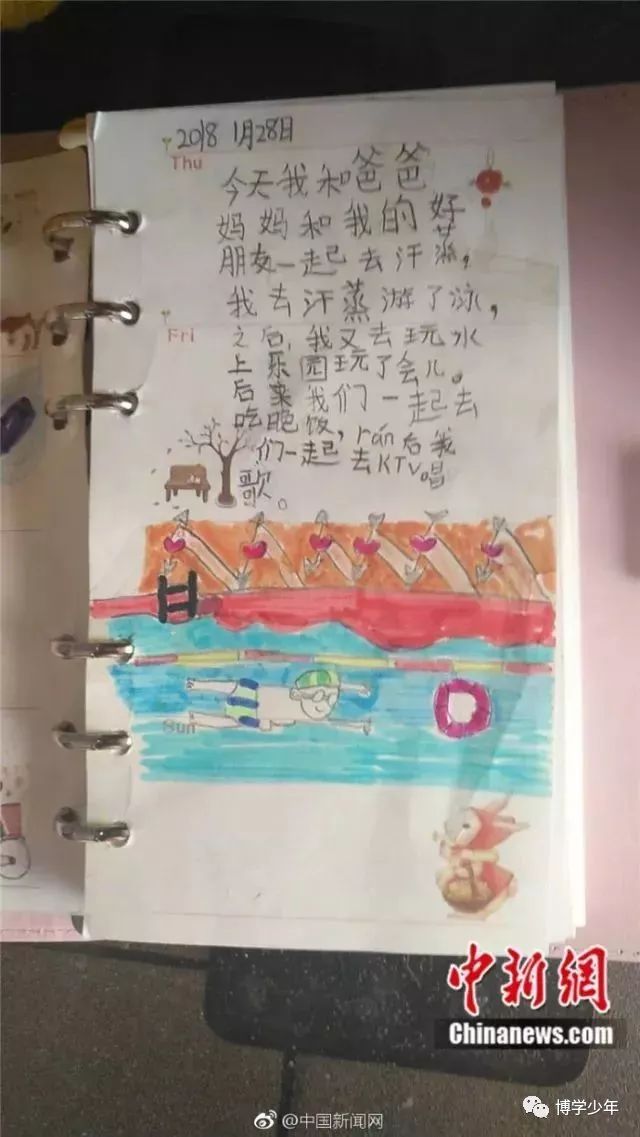 2018 1月28日
Thu
今天我和爸爸
妈妈和我的好
朋友一起去汗蒸,
我去汗蒸游了泳,
Fri
之后,我又去玩水
上乐园玩了会儿。
后来我们一起去
吃晚饭,rán后我
们一起去KTV唱
歌。
Sun
中新網
Chinanews.com
博学少年
@中国新闻网